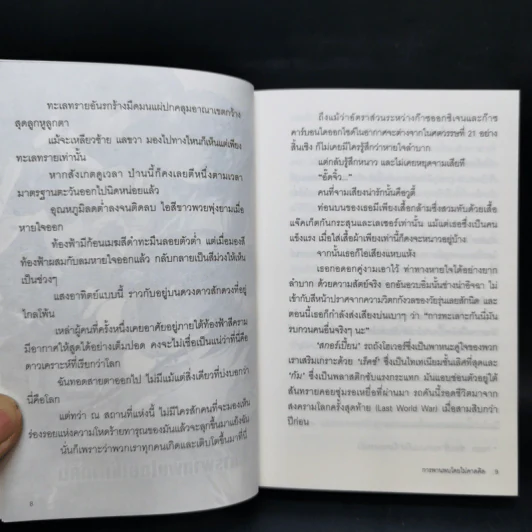 ทะเลทรายอันรกร้างมืดมนแผ่ปกคลุมอาณาเขตกว้าง
สุดลูกหูลูกตา
แม้จะเหลียวซ้าย แลขวา มองไปทางไหนก็เห็นแต่เพียง
ทะเลทรายเท่านั้น
หากสังเกตดูเวลา ป่านนี้ก็คงเลยตีหนึ่งตามเวลา
มาตรฐานตะวันออกไปนิดหน่อยแล้ว
อุณหภูมิลดต่ำลงจนติดลบ ไอสีขาวพวยพุ่งยามเมื่อ
หายใจออก
ท้องฟ้ามีก้อนเมฆสีดำทะมึนลอยตัวต่ำ แต่เมื่อมองสี
ท้องฟ้าผสมกับลมหายใจออกแล้ว กลับกลายเป็นสีม่วงให้เห็น
เป็นช่วงๆ
แสงอาทิตย์แบบนี้ ราวกับอยู่บนดวงดาวสักดวงที่อยู่
ไกลโพ้น
เหล่าผู้คนที่ครั้งหนึ่งเคยอาศัยอยู่ภายใต้ท้องฟ้าสีคราม
มีอากาศให้สูดได้อย่างเต็มปอด คงจะไม่เชื่อเป็นแน่ว่าที่นี่คือ
ดาวเคราะห์ที่เรียกว่าโลก
อันทอดสายตาออกไป ไม่มีแม้แต่สิ่งเดียวที่บ่งบอกว่า
นี่คือโลก
แต่ทว่า ณ สถานที่แห่งนี้ ไม่มีใครสักคนที่จะมองเห็น
ร่องรอยแห่งความโหดร้ายทารุณของมันแล้วจะลุกขึ้นมาแย้งมัน
นั่นก็เพราะว่าพวกเราทุกคนเกิดและเติบโตขึ้นมาที่นี่
8
ถึงแม้ว่าอัตราส่วนระหว่างก๊าซออกซิเจนและก๊าซ
คาร์บอนไดออกไซด์ในอากาศจะต่างจากในศตวรรษที่ 21 อย่าง
สิ้นเชิง ก็ไม่เคยมีใครรู้สึกว่าหายใจลำบาก
แต่กลับรู้สึกหนาว และไม่เคยหยุดจามเสียที
"ฮั้ดจิ้ว..."
คนที่จามเสียงน่ารักนั้นคือวูดี้
ท่อนบนของเธอมีเพียงเสื้อกล้ามซึ่งสวมทับด้วยเสื้อ
แจ๊คเก็ตกันกระสุนและเลเซอร์เท่านั้น แม้แต่เธอซึ่งเป็นคน
แข็งแรง เมื่อใส่เสื้อผ้าเพียงเท่านี้ก็คงจะหนาวอยู่บ้าง
จากนั้นเธอก็ไอเสียงแหบแห้ง
เธอกอดอกคู่งามเอาไว้ ท่าทางหายใจได้อย่างยาก
ลำบาก ด้วยความสัตย์จริง อกอันอวบอิ่มนั้นช่างน่าอิจฉา ไม่
เข้ากับสีหน้าปราศจากความวิตกกังวลของวัยรุ่นเลยสักนิด และ
ตอนนี้เธอก็กำลังส่งเสียงบ่นเบาๆ ว่า "การทะเลาะกันนี่มัน
รบกวนคนอื่นจริงๆ นะ"
"สกอร์เปี้ยน" รถถังโฮเวอร์ซึ่งเป็นพาหนะคู่ใจของพวก
เราเสริมเกราะด้วย 'เร็คซ์' ซึ่งเป็นไทเทเนียมชั้นเลิศที่สุดและ
'กัม' ซึ่งเป็นพลาสติกซับแรงกระแทก มันแอบซ่อนตัวอยู่ใต้
ลันทรายคอยซุ่มรอเหยื่อที่ผ่านมา รถคันนี้รอดชีวิตมาจาก
สงครามโลกครั้งสุดท้าย (Last World War) เมื่อสามสิบกว่า
ปีก่อน
การพานพบโดยไม่คาดคิด 9